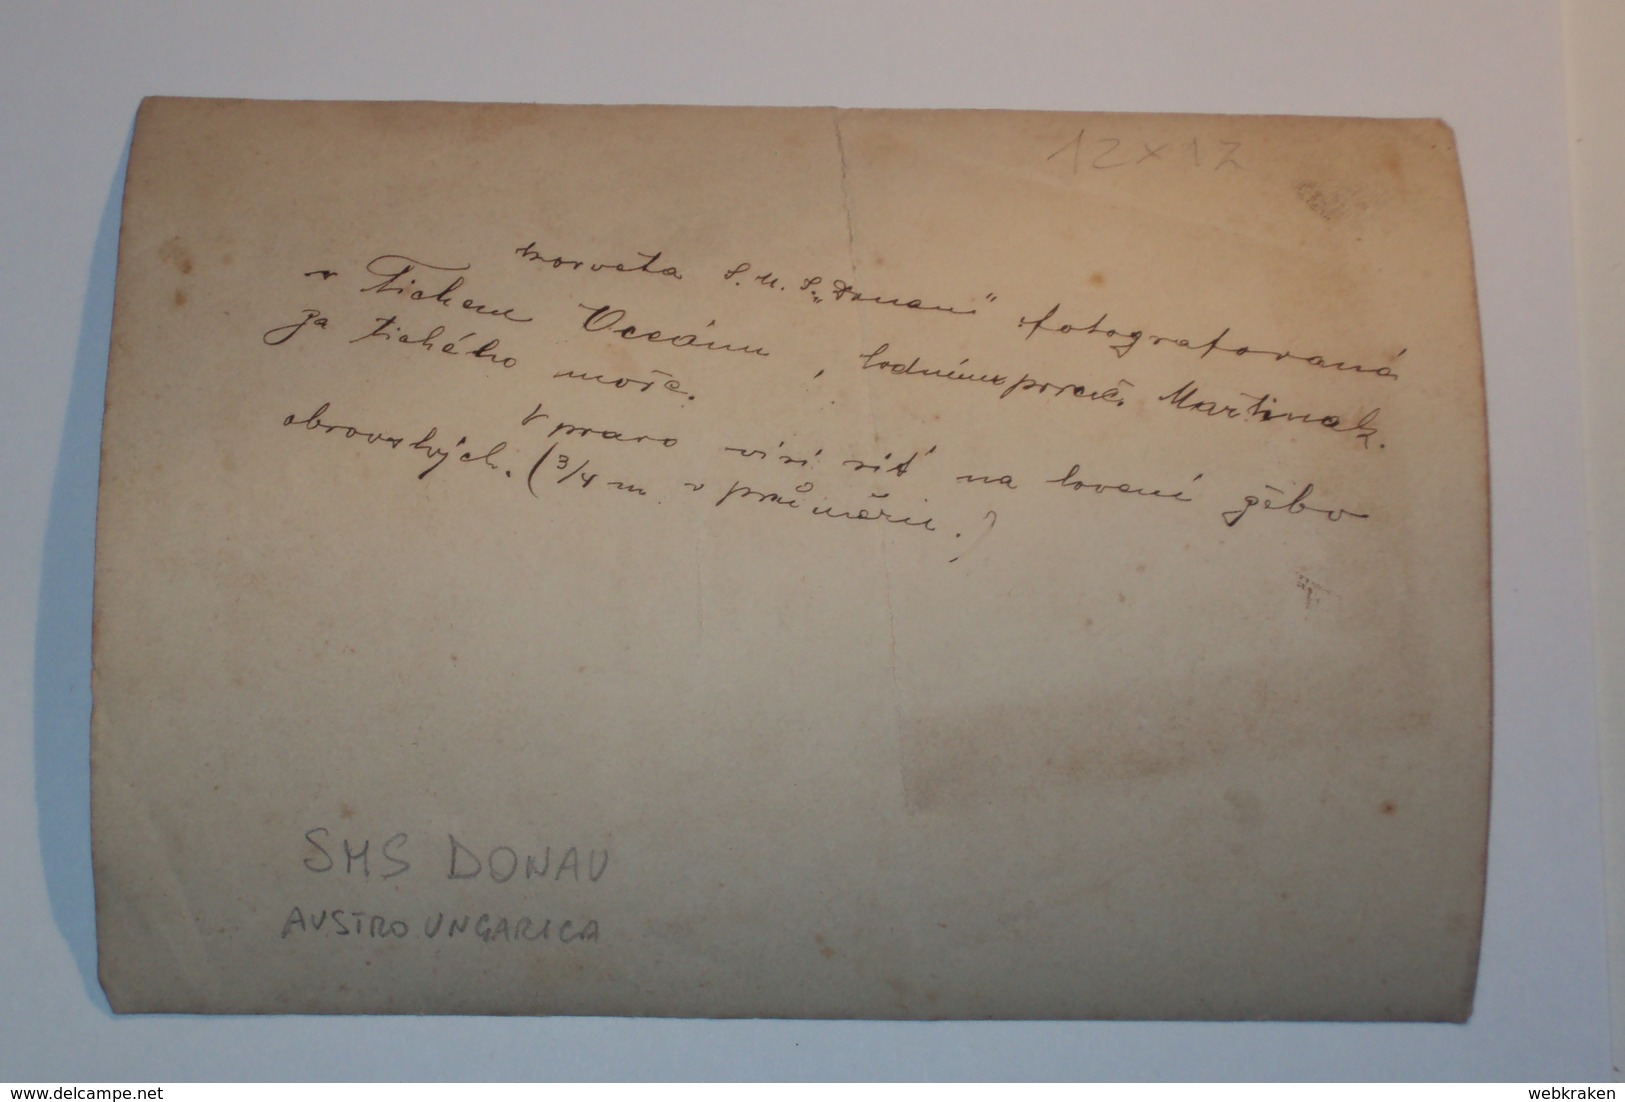 12×17
Korveta S. M. S. „Donau" fotografovaná
v Tichem Oceánu, lodním poruč. Martinak.
za tichého moře.
V pravo visí síť na lovení žěbv
obrovských. (3/4 m v průměru.)
SMS DONAU
AUSTRO UNGARICA
webkraken